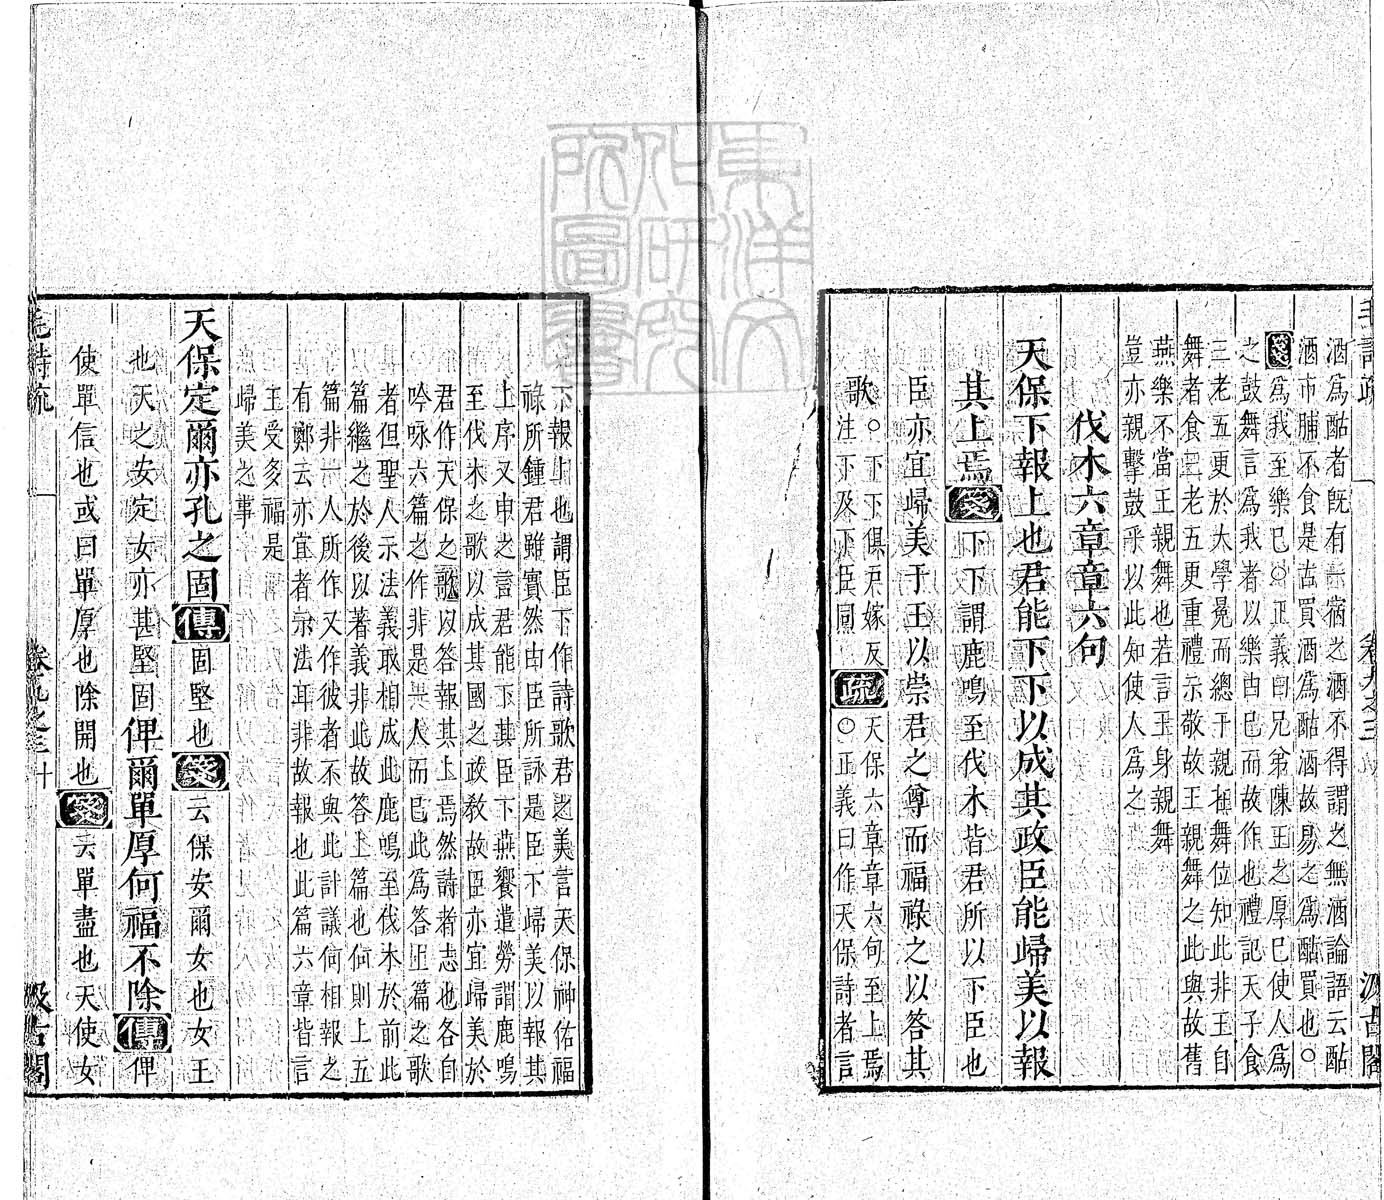 毛詩疏 卷九之三 九 汲古閣
酒爲酤者旣有一宿之酒不得謂之無酒論語云酤
酒市脯不食是古買酒爲酤酒故易之爲酤買也○
箋爲我至樂已○正義曰兄弟陳王之厚已使人爲
之鼓舞言爲我者以樂由已而故作也禮記天子食
三老五更於大學冕而總干親在舞位知此非王自
舞者食三老五更重禮示敬故王親舞之此與故舊
燕樂不當王親舞也若言王身親舞
豈亦親擊鼓乎以此知使人爲之
伐木六章章六句
天保下報上也君能下下以成其政臣能歸美以報
其上焉箋下下謂鹿鳴至伐木皆君所以下臣也
臣亦宜歸美于王以崇君之尊而福祿之以答其
歌○下下俱戶嫁反
注下及下臣同
疏天保六章章六句至上焉
○正義曰作天保詩者言
下報上也謂臣下作詩歌君之美言天保神佑福
祿所鍾君雖實然由臣所詠是臣下歸美以報其
上序又申之言君能下其臣下燕饗遣勞謂鹿鳴
至伐木之歌以成其國之政敎故臣亦宜歸美於
君作天保之歌以答報其上焉然詩者志也各自
吟咏六篇之作非是一人而已此爲答上篇之歌
者但聖人示法義取相成此鹿鳴至伐木於前此
篇繼之於後以著義非此故答上篇也何則上五
篇非一人所作又作彼者不與此計議何相報之
有鄭云亦宜者示法耳非故報也此篇六章皆言
王受多福是
歸美之事
天保定爾亦孔之固傳固堅也箋云保安爾女也女王
也天之安定女亦甚堅固俾爾單厚何福不除傳俾
使單信也或曰單厚也除開也箋云單盡也天使女
毛詩疏 卷九之三 十 汲古閣
東洋文化研究所圖書